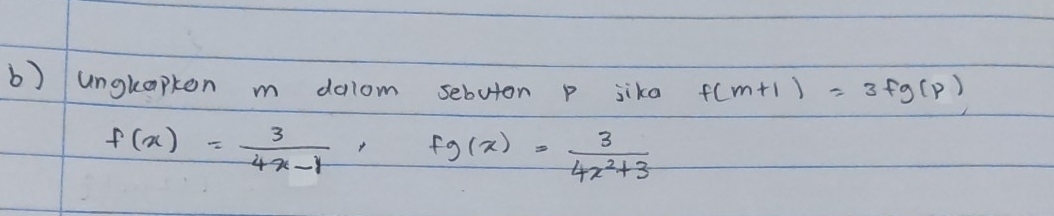 b) Ungkapkan m dalam sebutan p jika f(m+1) = 3fg(p)
f(x) = 3/(4x-1) , fg(x) = 3/(4x²+3)